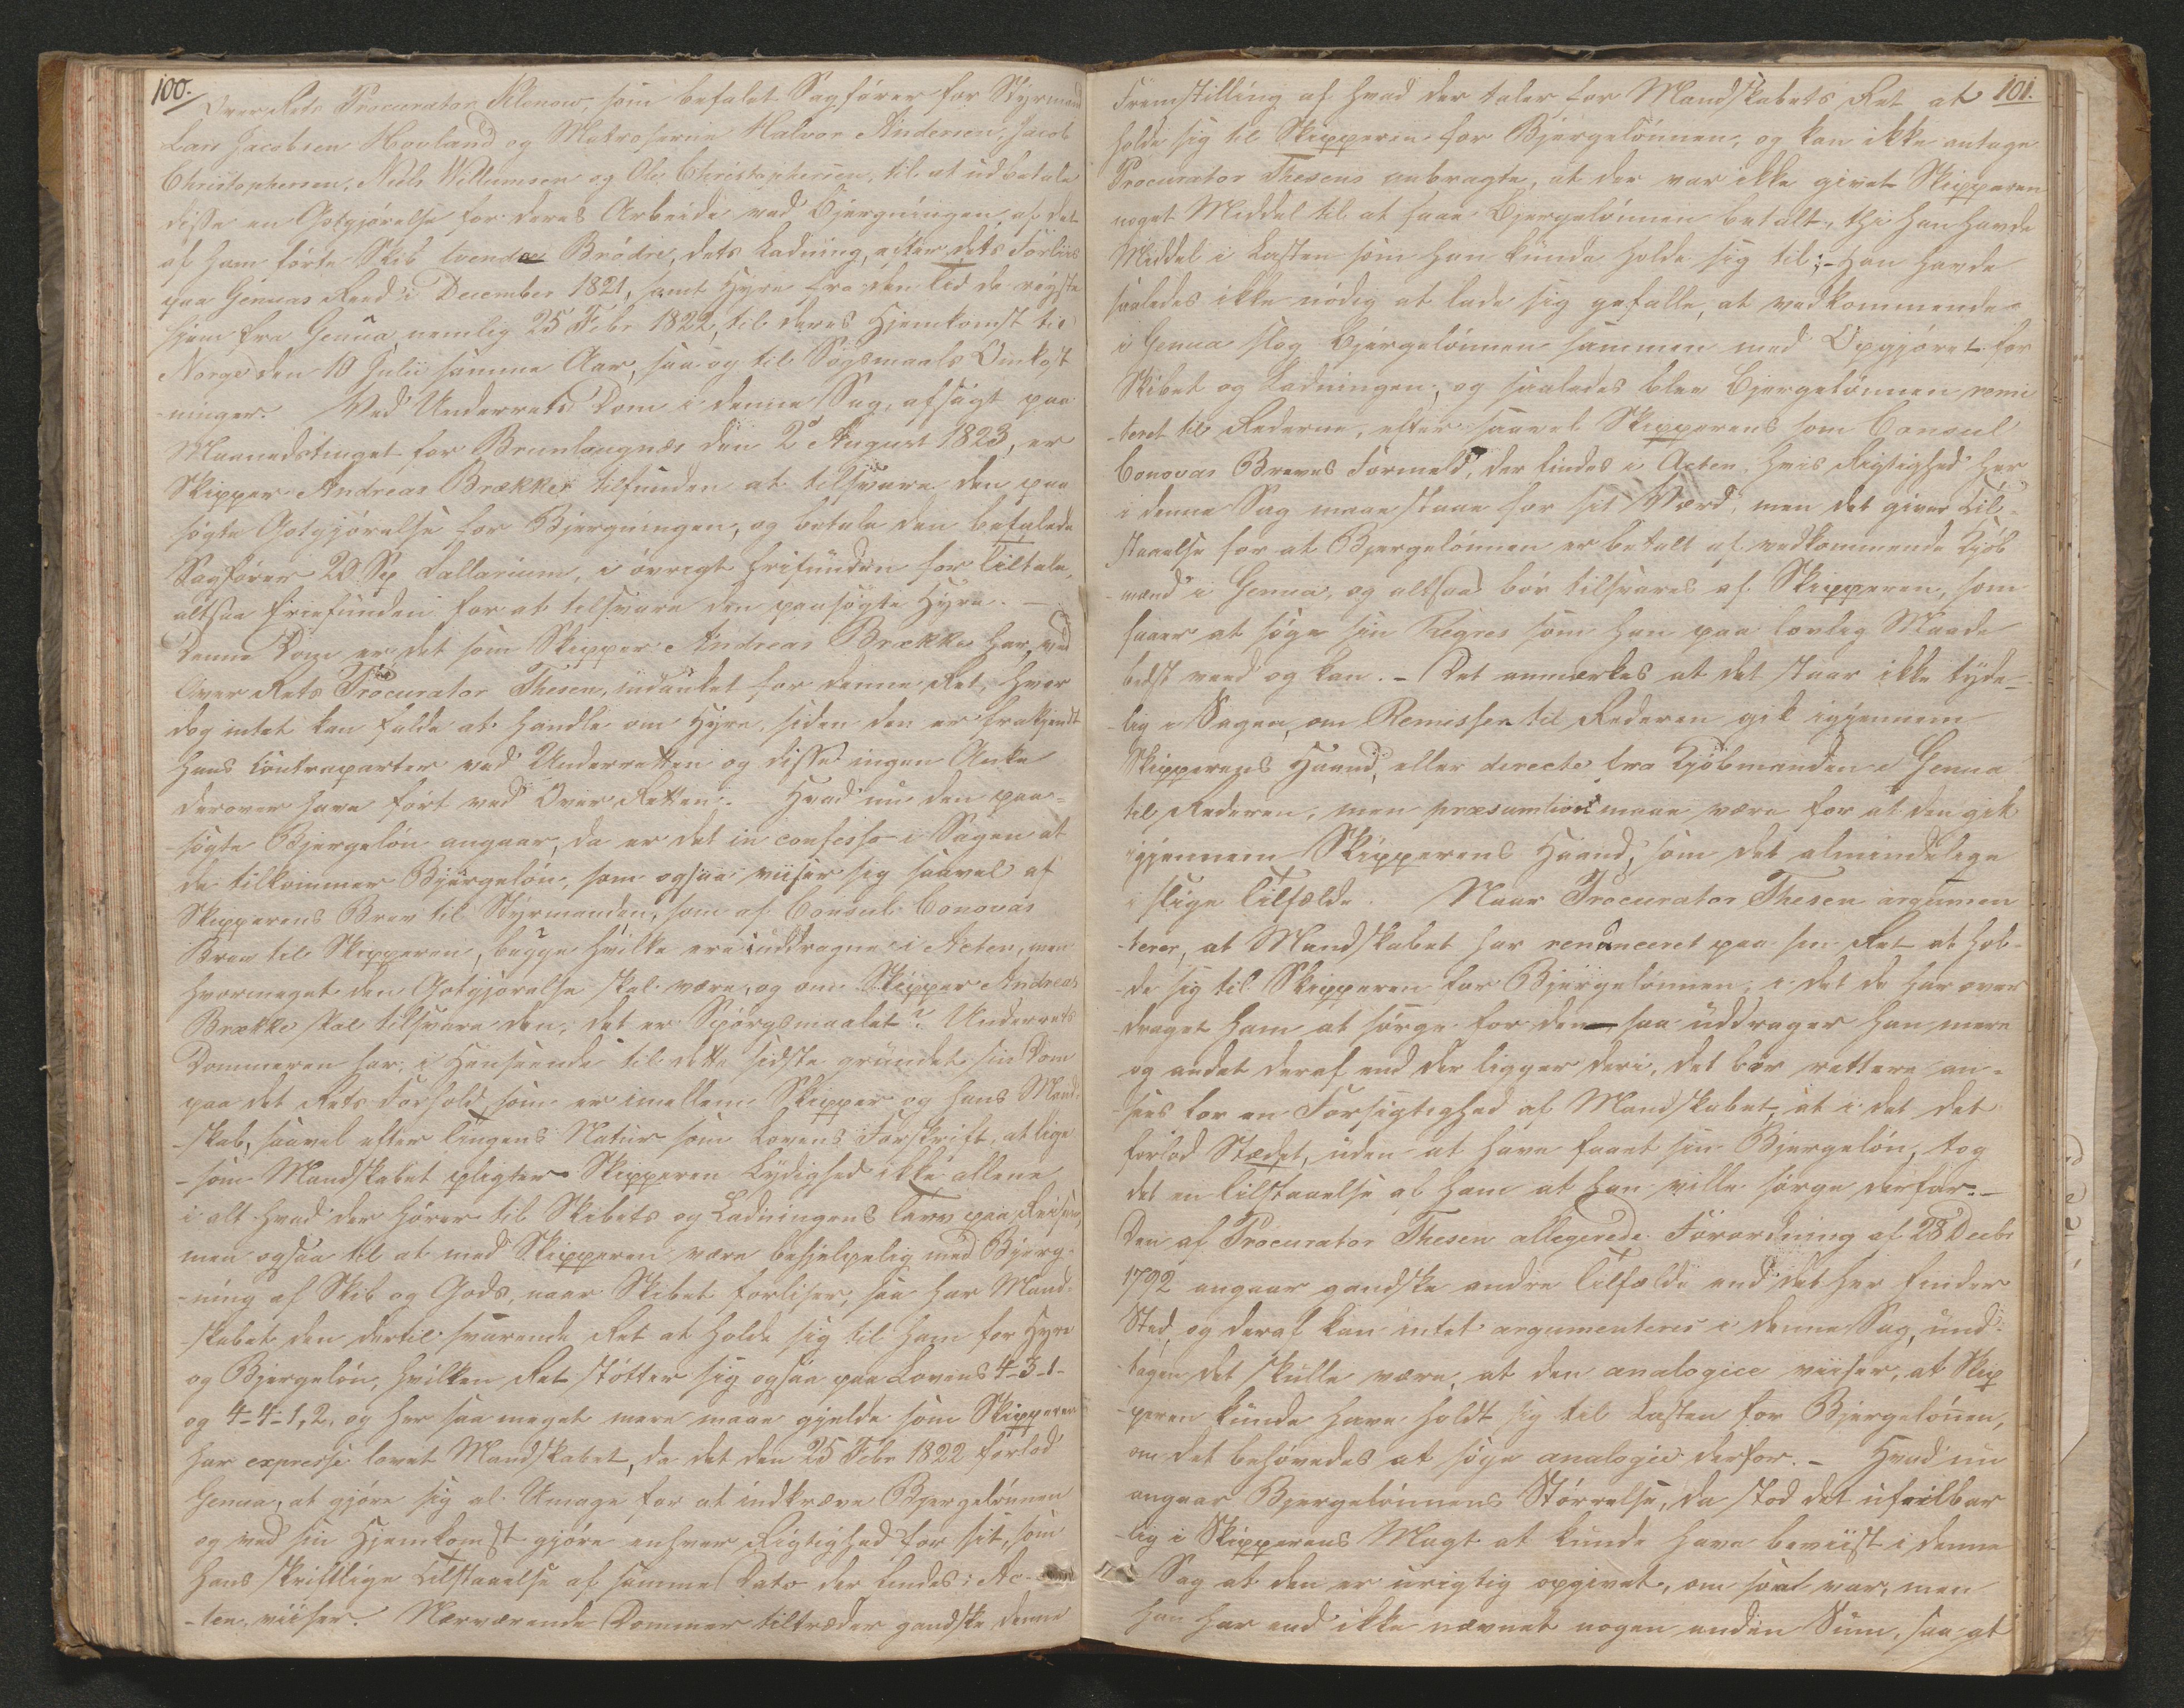 100.
Over Rets Procurator Klenow, som befalet Sagfører for Styrmand
Lars Jacobsen Hovland og Matroserne Halvor Andersen, Jacob
Christophersen, Niels Willumsen og Ole Christophersen, til at udbetale
disse en Godtgjørelse for deres Arbeide ved Bjergningen af det
af ham førte Skib tvende Brødre, dets Ladning, efter dets Forliis
paa Genuas Reed i December 1821, samt Hyre fra den Tid de reyste
hjem fra Genua, nemlig 25 Febr 1822, til deres Hjemkomst til
Norge den 10 Julii samme Aar, saa og til Søgsmaals Omkost
-ninger. Ved Underrets Dom i denne Sag, afsagt paa
Maanedstinget for Brunlaugnæs den 2 August 1823, er
Skipper Andreas Brække tilfunden at tilsvare den paa
søgte Godtgjørelse for Bjergningen, og betale den befalede
Sagfører 20 Sp Sallarium, i øvrigt frifunden for Tiltale,
altsaa friefunden for at tilsvare den paasøgte Hyre. —
Denne Dom er det som Skipper Andreas Brække har, ved
Over Rets Procurator Thesen, indanket for denne Ret, hvor
dog intet kan falde at handle om Hyre, siden den er frakjendt
hans Contraparter ved Underretten og disse ingen Anke
derover have ført ved Over Retten. Hvad nu den paa-
-søgte Bjergeløn angaaer, da er det in confesso i Sagen at
de tilkommer Bjergeløn, som ogsaa viiser sig saavel af
Skipperens Brev til Styrmanden, som af Consul Conovas
Brev til Skipperen, begge hvilke ere uddragne i Acten, men
hvormeget den Godtgjørelse skal være, og om Skipper Andreas
Brække skal tilsvare den, det er Spørgsmaalet? Underrets
Dommeren har, i Henseende til dette sidste grundet sin Dom
paa det Rets Forhold som er imellem Skipper og hans Mand-
-skab, saavel efter Tingens Natur som Lovens Forskrift, at lige
-som Mandskabet pligter Skipperen Lydighed ikke allene
i alt hvad der hører til Skibets og Ladningens Tarv paa Reisen,
men ogsaa til at med Skipperen være behjelpelig med Bjerg-
-ning af Skib og Gods, naar Skibet forliser, saa har Mand-
skabet den dertil svarende Ret at holde sig til ham for Hyre
og Bjergeløn, hvilken Ret støtter sig ogsaa paa Lovens 4-3-1-
og 4-4-1,2, og her saa meget mere maae gjelde som Skipperen
har expresse lovet Mandskabet, da det den 25 Febr 1822 forlod
Genua, at gjøre sig al Umage for at indkræve Bjergelønnen
og ved sin Hjemkomst gjøre enhver Rigtighed for sit, som
hans skriftlige Tilstaaelse af samme Dato der findes i Ac-
-ten, viiser. Nærværende Dommer tiltræder gandske denne
101.
Fremstilling af hvad der taler for Mandskabets Ret at
holde sig til Skipperen for Bjergelønnen, og kan ikke antage
Procurator Thesens anbragte, at der var ikke givet Skipperen
noget Middel til at faae Bjergelønnen betalt, thi han havde
Middel i Lasten som han kunde holde sig til; - Han havde
saaledes ikke nødig at lade sig gefalle, at vedkommende
i Genua slog Bjergelønnen sammen med Opgjøret for
Skibet og Ladningen, og saaledes blev Bjergelønnen remi
-teret til Rederne, efter saavel Skipperens som Consul
Conovas Breves Formeld, der findes i Acten, hvis Rigtighed her
i denne Sag maae staae for sit Værd, men det giver Til-
staaelse for at Bjergelønnen er betalt af vedkommende Kjøb
-mænd i Genua, og altsaa bør tilsvares af Skipperen, som
faaer at søge sin Regres som han paa lovlig Maade
bedst veed og kan. - Det anmærkes at det staar ikke tyde-
-lig i Sagen, om Remissen til Rederen gik igjennem
Skipperens Haand, eller directe fra Kjøbmanden i Genua
til Rederen, men præsumtion maae være for at den gik
igjennem Skipperens Haand, som det almindelige
i slige Tilfælde. Naar Procurator Thesen argumen
-terer, at Mandskabet har renunceret paa sin Ret at hol-
-de sig til Skipperen for Bjergelønnen, i det de har over
draget ham at sørge for den — saa uddrager han mere
og andet deraf end der ligger deri, det bør rettere an-
-sees for en Forsigtighed af Mandskabet, at i det det
forlod Stædet, uden at have faaet sin Bjergeløn, tog
det en Tilstaaelse af ham at han ville sørge derfor. -
Den af Procurator Thesen allegerede Forordning af 28 Decbr
1792 angaar gandske andre Tilfælde end det her finder
Sted, og deraf kan intet argumenteres i denne Sag, und-
-tagen det skulle være, at den analogice viiser, at Skip
-peren kunde have holdt sig til Lasten for Bjergelønnen,
om det behøvedes at søge analogie derfor. - Hvad nu
angaar Bjergelønnens Størrelse, da stod det ufeilbar
-lig i Skipperens Magt at kunde have beviist i denne
Sag at den er urigtig opgivet, om saa var, men
han har end ikke nævnet nogen anden Sum, saa at